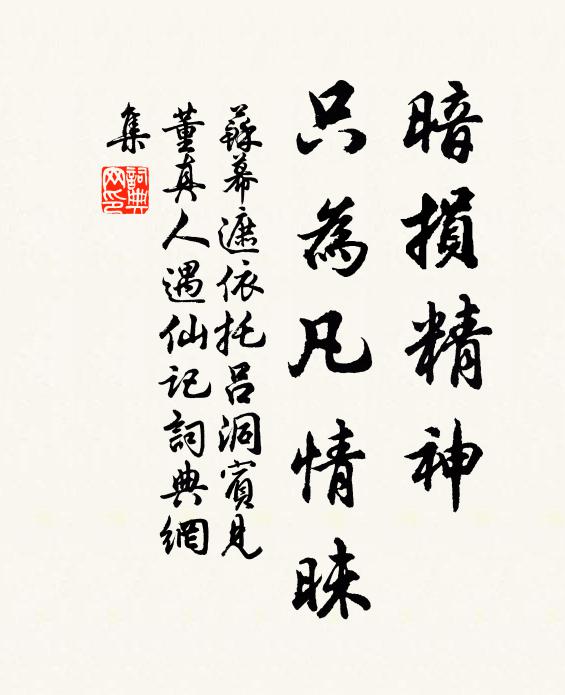 暗損精神
只為凡情昧
蘇幕遮依托呂洞賓見
董真人遇仙記詞典網
集
詞典網印